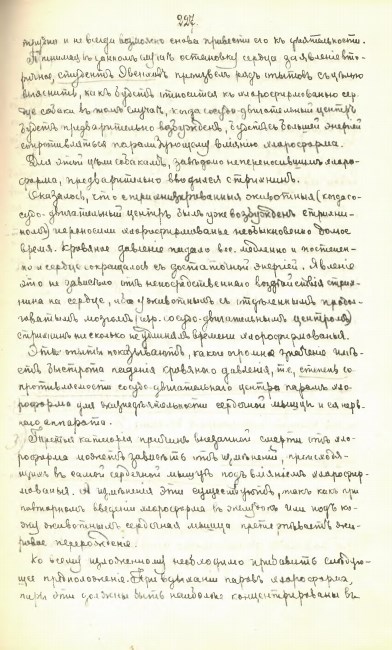 227.
трудно и не всегда возможно снова привести его къ дѣятельности.
Принимая въ данномъ случаѣ остановку сердца за явленіе вто-
ричное, студентъ произвелъ рядъ опытовъ съ цѣлью
выяснить, какъ будетъ относиться къ хлороформированью серд-
це собаки въ томъ случаѣ, когда сосудо-двигательный центръ
будетъ предварительно возбужденъ, будетъ съ большей энергіей
сопротивляться парализующему вліянію хлороформа.
Для этой цѣли собакамъ, заводомо непереносившимъ хлоро-
форма, предварительно вводился стрихнинъ.
Оказалось, что стрихнизированныя животныя (когда со-
судо-двигательный центръ былъ уже возбужденъ стрихни-
номъ) переносили хлороформированье необыкновенно долгое
время. Кровяное давленіе падало все медленно и постепен-
но и сердце сокращалось съ достаточной энергіей. Явленіе
это не зависѣло отъ непосредственнаго воздѣйствія стрих-
нина на сердце, ибо у животныхъ съ отдѣленнымъ продол-
говатымъ мозгомъ (сосудо-двигательнымъ центромъ)
стрихнинъ нисколько не удлинялъ времени хлороформированья.
Эти опыты показываютъ, какое огромное значеніе имѣ-
етъ быстрота паденія кровяного давленія, т.е. степень со-
противляемости сосудо-двигательнаго центра парамъ хло-
роформа для жизнедѣятельности сердечной мышцы и ея нерв-
наго аппарата.
Третья категорія причинъ внезапной смерти отъ хло-
роформа можетъ зависѣть отъ измѣненій, происходя-
щихъ въ самой сердечной мышцѣ подъ вліяніемъ хлорофор-
мированья. А измѣненія эти существуютъ, такъ какъ при
повторномъ введеніи хлороформа въ желудокъ или подъ ко-
жу животнымъ, сердечная мышца претерпѣваетъ жи-
ровое перерожденіе.
Ко всему изложенному необходимо прибавить слѣдую-
щее предположеніе. При вдыханіи паровъ хлороформа,
пары эти должны быть наиболѣе концентрированы въ